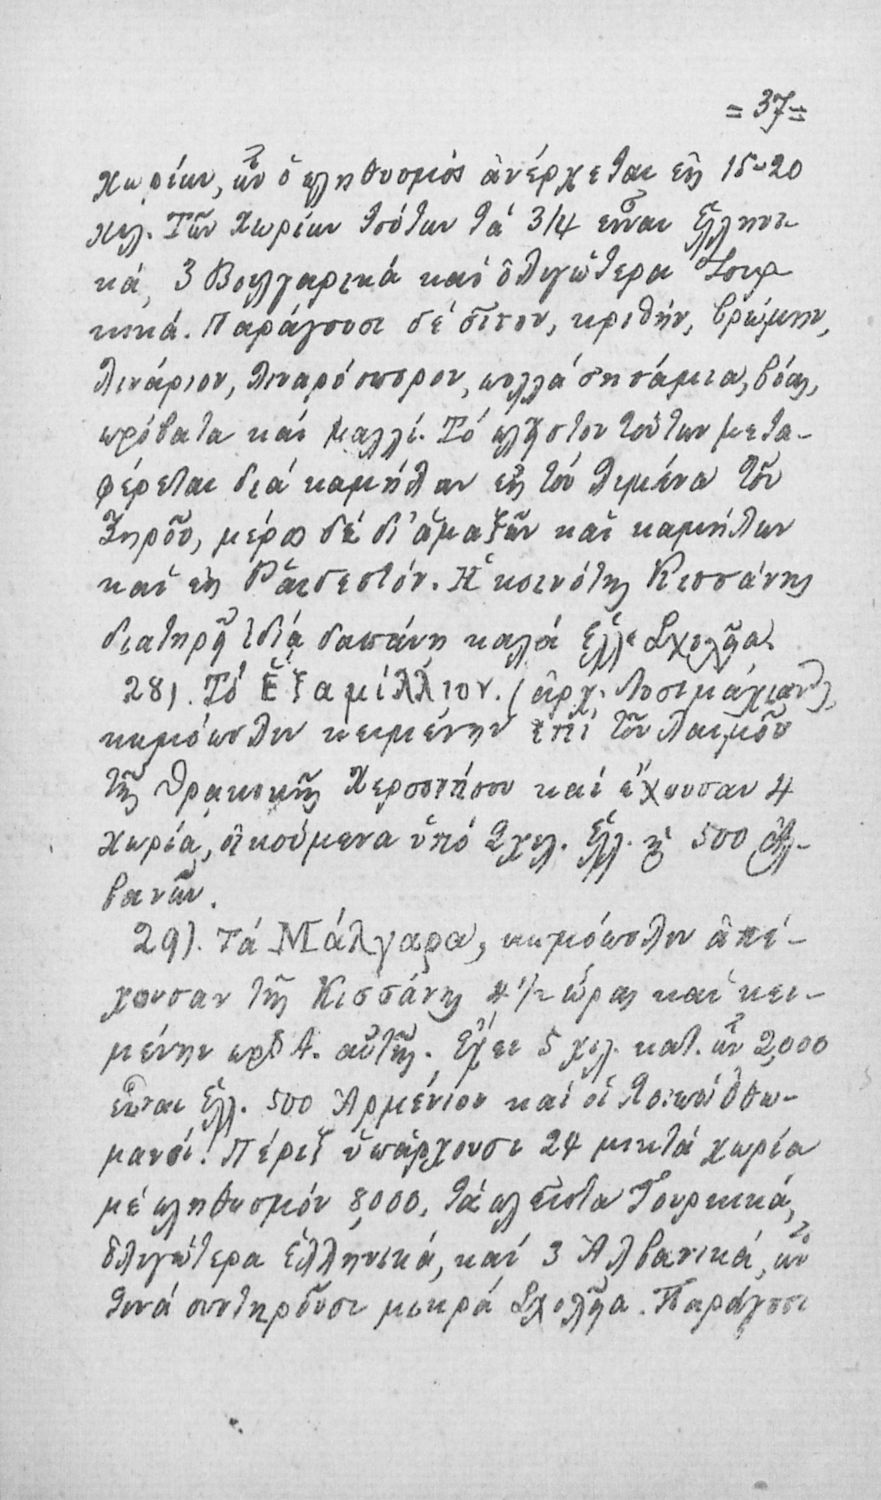 = 37 =
χωρίων, ὧν ὁ πληθυσμὸς ἀνέρχεται εἰς 15-20
χιλ. Τῶν χωρίων τούτων τὰ 3/4 εἶναι Ἑλληνι-
κά, 3 Βουλγαρικά καὶ ὀλιγώτερα Τουρ-
κικά. Παράγουσι δέ σῖτον, κριθήν, βρώμην,
λινάριον, λιναρόσπορον, πολλά σησάμια, βόας,
πρόβατα καί μαλλί. Τό πλεῖστον τούτων μετα-
φέρεται διά καμήλων εἰς τόν λιμένα τοῦ
Ξηροῦ, μέρος δέ δι' ἁμαξῶν καί καμήλων
καί εἰς Ραιδεστόν. Η κοινότης Κεσσάνης
διατηρεῖ ἰδίᾳ δαπάνῃ καλά Ελλ. Σχολεῖα.
28). Τό Ἑξαμίλλιον. (ἀρχ. Λυσιμάχιαν),
κωμόπολιν κειμένην ἐπί τοῦ λαιμοῦ
τῆς Θρακικῆς Χερσονήσου καί ἔχουσαν 4
χωρία, οἰκούμενα ὑπό 2 χιλ. Ελλ. κ 500 Ἀλ-
βανῶν.
29). Τά Μάλγαρα, κωμόπολιν ἀπέ-
χουσαν τῆς Κεσσάνης 4 1/2 ὥρας καί κει-
μένην πρὸς Α. αὐτῆς. Ἔχει 5 χιλ. κατ. ὧν 2,000
εἶναι Ἑλλ. 500 Ἀρμένιοι καί οἱ λοιποί Ὀθω-
μανοί. Πέριξ ὑπάρχουσι 24 μικτά χωρία
μέ πληθυσμόν 8,000, τά πλεῖστα Τουρκικά,
ὀλιγώτερα ἑλληνικά, καί 3 Ἀλβανικά, ὧν
τινά συντηροῦσι μικρά Σχολεῖα. Παράγουσι